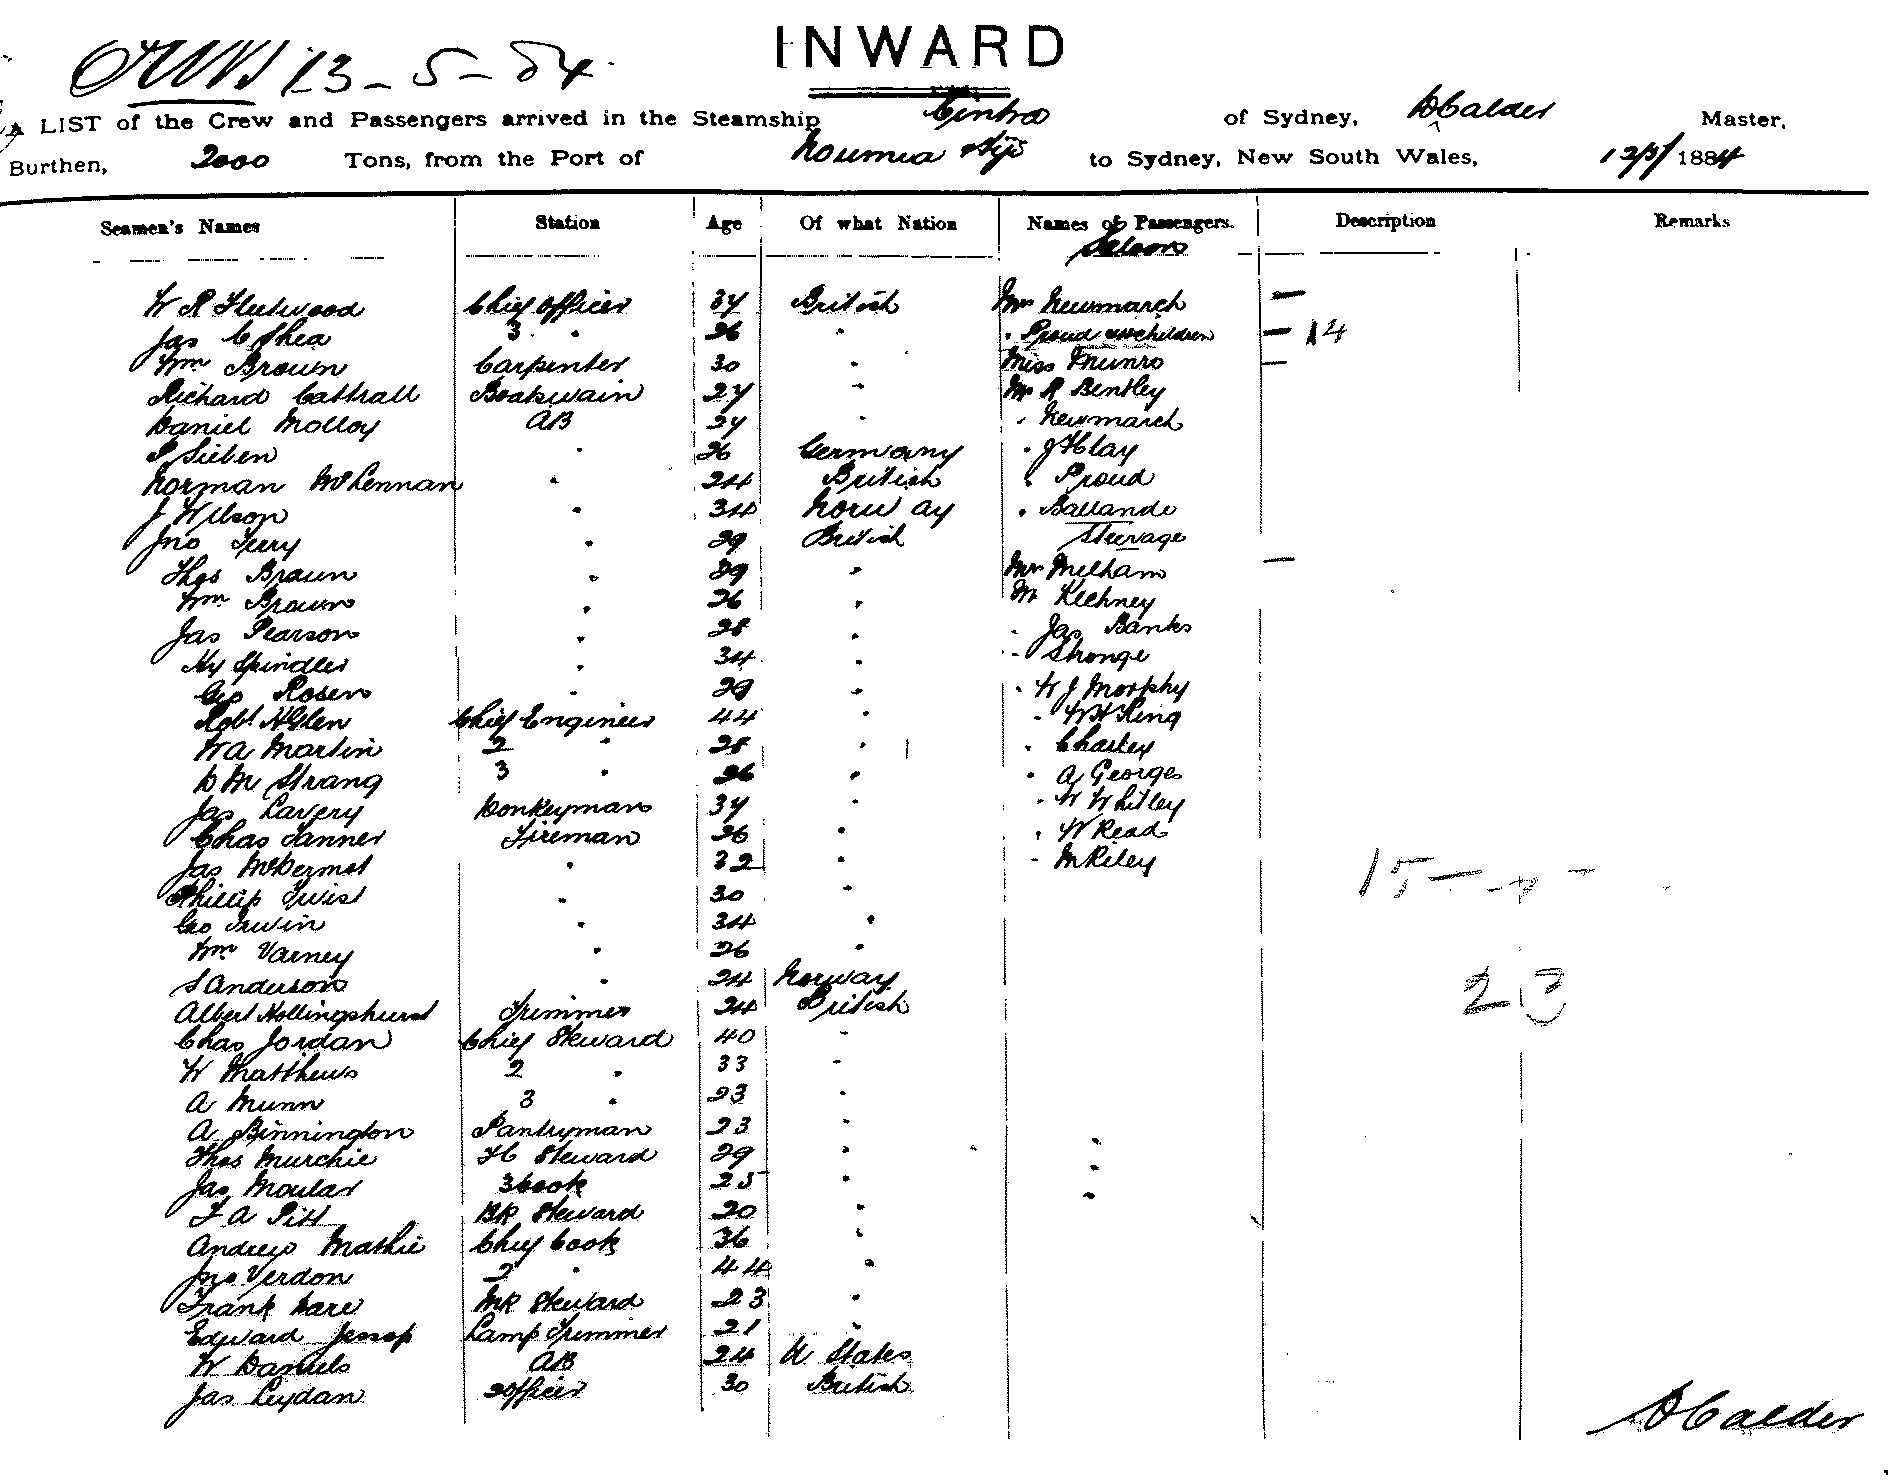 INWARD
13-5-84
A LIST of the Crew and Passengers arrived in the Steamship Cintra of Sydney, D Calder Master,
Burthen, 2000 Tons, from the Port of Noumea & Fiji to Sydney, New South Wales, 12/5/1884
Seamen's Names Station Age Of what Nation Names of Passengers. Description Remarks
Saloon
W R Fleetwood Chief Officer 37 British Mrs Newmarch —
Jas C Shea 3 " 26 " " Proud children — 14
Wm Brown Carpenter 30 " Miss Munro —
Richard Cattrall Boatswain 27 " Mr R Bentley
Daniel Molloy AB 27 " " Newmarch
P Sieben " 26 Germany " J H Clay
Norman McLennan " 24 British " Proud
J Wilson " 34 Norway " Ballande
Jno Terry " 29 British Steerage
Thos Braun " 29 " Mrs Melham —
Wm Brown " 26 " Mr Kechney
Jas Pearson " 28 " " Jas Banks
Hy Spindler " 34 " " Stronge
Geo Rosen " 29 " " W J Morphy
Robt H Glen Chief Engineer 44 " " W H King
W A Martin 2 " 28 " " Charley
D M Strang 3 " 26 " " A Georges
Jas Lavery Donkeyman 37 " " W Whitley
Chas Tanner Fireman 26 " " W Read
Jas McDermot " 32 " " M Riley
15 —
Phillip Twist " 30 "
Geo Irwin " 34 "
Wm Varney " 26 "
S Anderson " 24 Norway
23
Albert Hollingshurst Trimmer 24 British
Chas Jordan Chief Steward 40 "
W Matthews 2 " 33 "
A Munn 3 " 23 "
A Binnington Pantryman 23 "
Thos Murchie FC Steward 29 "
Jas Moular 3 Cook 25 "
F A Pitt BR Steward 20 "
Andrew Mathie Chief Cook 36 "
Jno Verdon 2 " 44 "
Frank Hare MR Steward 23 "
Edward Jessop Lamp Trimmer 21 "
W Daniels AB 24 U States
Jas Leydan 2 Officer 30 British
D Calder